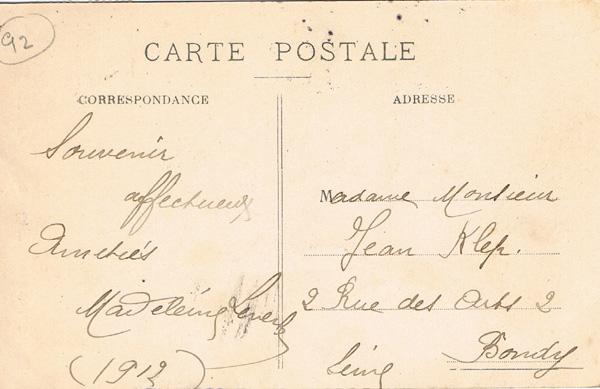 92
CARTE POSTALE
CORRESPONDANCE
Souvenir
affectueux
Amitiés
Madeleine
(1912)
ADRESSE
Madame Monsieur
Jean Klep.
2 Rue des Arts 2
Bondy
Seine